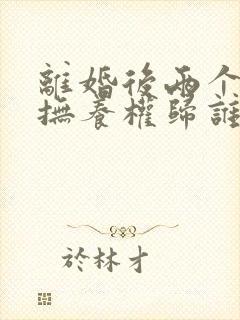 離婚後兩个
撫養權歸誰
於林才